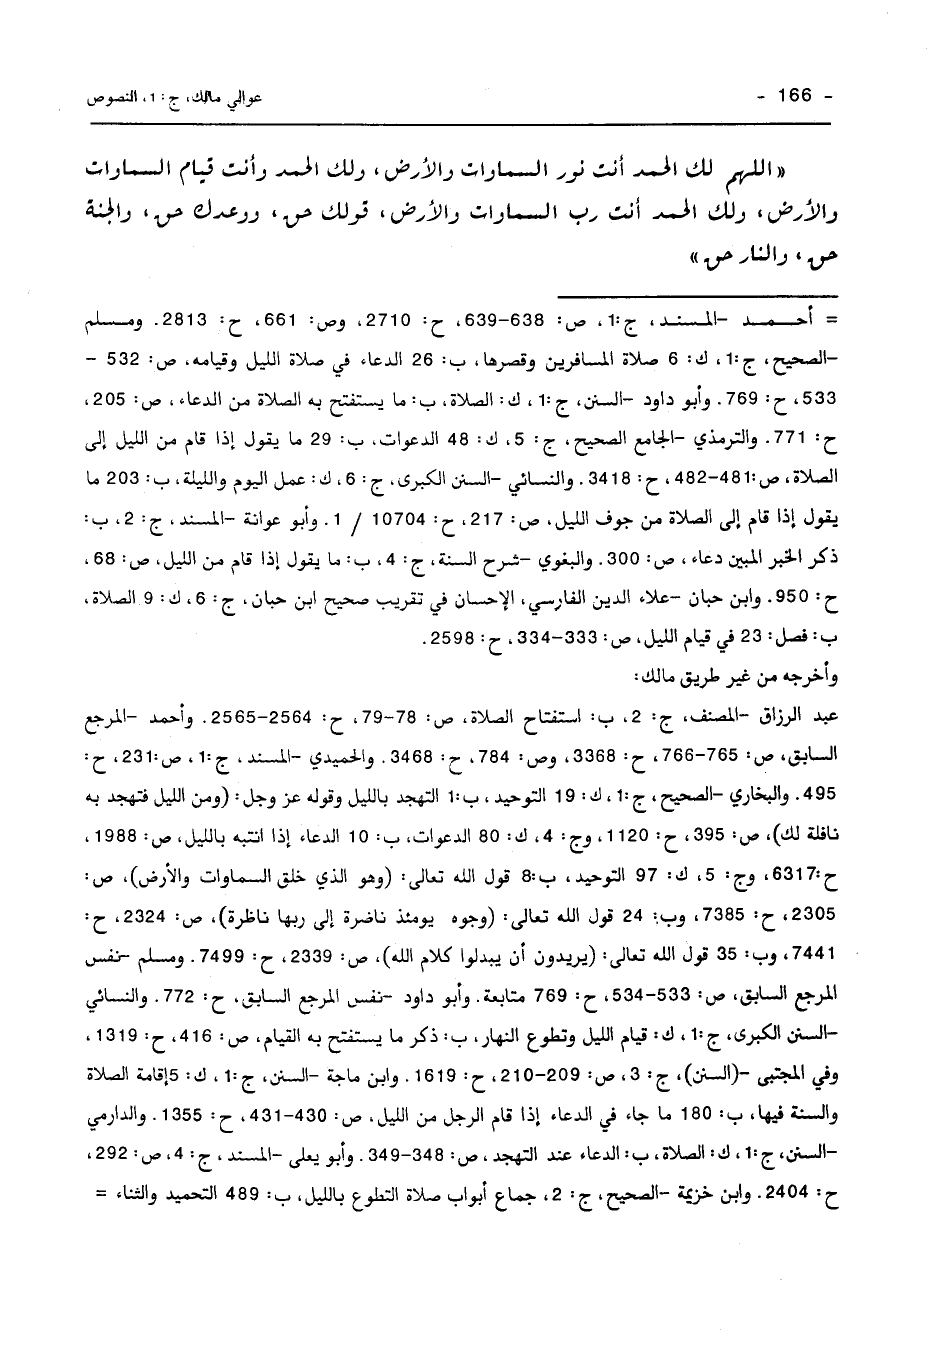 - 166 - عوالي مالك، ج: 1، النصوص
«اللهم لك الحمد أنت نور السماوات والأرض، ولك الحمد وأنت قيام السماوات
والأرض، ولك الحمد أنت رب السماوات والأرض، قولك حق، ووعدك حق، والجنة
حق، والنار حق»
= أحمد -المسند، ج:1، ص: 638-639، ح: 2710، وص: 661، ح: 2813. ومسلم
-الصحيح، ج:1، ك: 6 صلاة المسافرين وقصرها، ب: 26 الدعاء في صلاة الليل وقيامه، ص: 532 -
533، ح: 769. وأبو داود -السنن، ج:1، ك: الصلاة، ب: ما يستفتح به الصلاة من الدعاء، ص: 205،
ح: 771. والترمذي -الجامع الصحيح، ج: 5، ك: 48 الدعوات، ب: 29 ما يقول إذا قام من الليل إلى
الصلاة، ص:481-482، ح: 3418. والنسائي -السنن الكبرى، ج: 6، ك: عمل اليوم والليلة، ب: 203 ما
يقول إذا قام إلى الصلاة من جوف الليل، ص: 217، ح: 10704 / 1. وأبو عوانة -المسند، ج: 2، ب:
ذكر الخبر المبين دعاء، ص: 300. والبغوي -شرح السنة، ج: 4، ب: ما يقول إذا قام من الليل، ص: 68،
ح: 950. وابن حبان -علاء الدين الفارسي، الإحسان في تقريب صحيح ابن حبان، ج: 6، ك: 9 الصلاة،
ب: فصل: 23 في قيام الليل، ص: 333-334، ح: 2598.
وأخرجه من غير طريق مالك:
عبد الرزاق -المصنف، ج: 2، ب: استفتاح الصلاة، ص: 78-79، ح: 2564-2565. وأحمد -المرجع
السابق، ص: 765-766، ح: 3368، وص: 784، ح: 3468. والحميدي -المسند، ج:1، ص:231، ح:
495. والبخاري -الصحيح، ج:1، ك: 19 التوحيد، ب:1 التهجد بالليل وقوله عز وجل: (ومن الليل فتهجد به
نافلة لك)، ص: 395، ح: 1120، وج: 4، ك: 80 الدعوات، ب: 10 الدعاء إذا انتبه بالليل، ص: 1988،
ح:6317، وج: 5، ك: 97 التوحيد، ب:8 قول الله تعالى: (وهو الذي خلق السماوات والأرض)، ص:
2305، ح: 7385، وب: 24 قول الله تعالى: (وجوه يومئذ ناضرة إلى ربها ناظرة)، ص: 2324، ح:
7441، وب: 35 قول الله تعالى: (يريدون أن يبدلوا كلام الله)، ص: 2339، ح: 7499. ومسلم -نفس
المرجع السابق، ص: 533-534، ح: 769 متابعة. وأبو داود -نفس المرجع السابق، ح: 772. والنسائي
-السنن الكبرى، ج:1، ك: قيام الليل وتطوع النهار، ب: ذكر ما يستفتح به القيام، ص: 416، ح: 1319،
وفي المجتبى -(السنن)، ج: 3، ص: 209-210، ح: 1619. وابن ماجة -السنن، ج:1، ك: 5إقامة الصلاة
والسنة فيها، ب: 180 ما جاء في الدعاء إذا قام الرجل من الليل، ص: 430-431، ح: 1355. والدارمي
-السنن، ج:1، ك: الصلاة، ب: الدعاء عند التهجد، ص: 348-349. وأبو يعلى -المسند، ج: 4، ص: 292،
ح: 2404. وابن خزيمة -الصحيح، ج: 2، جماع أبواب صلاة التطوع بالليل، ب: 489 التحميد والثناء =